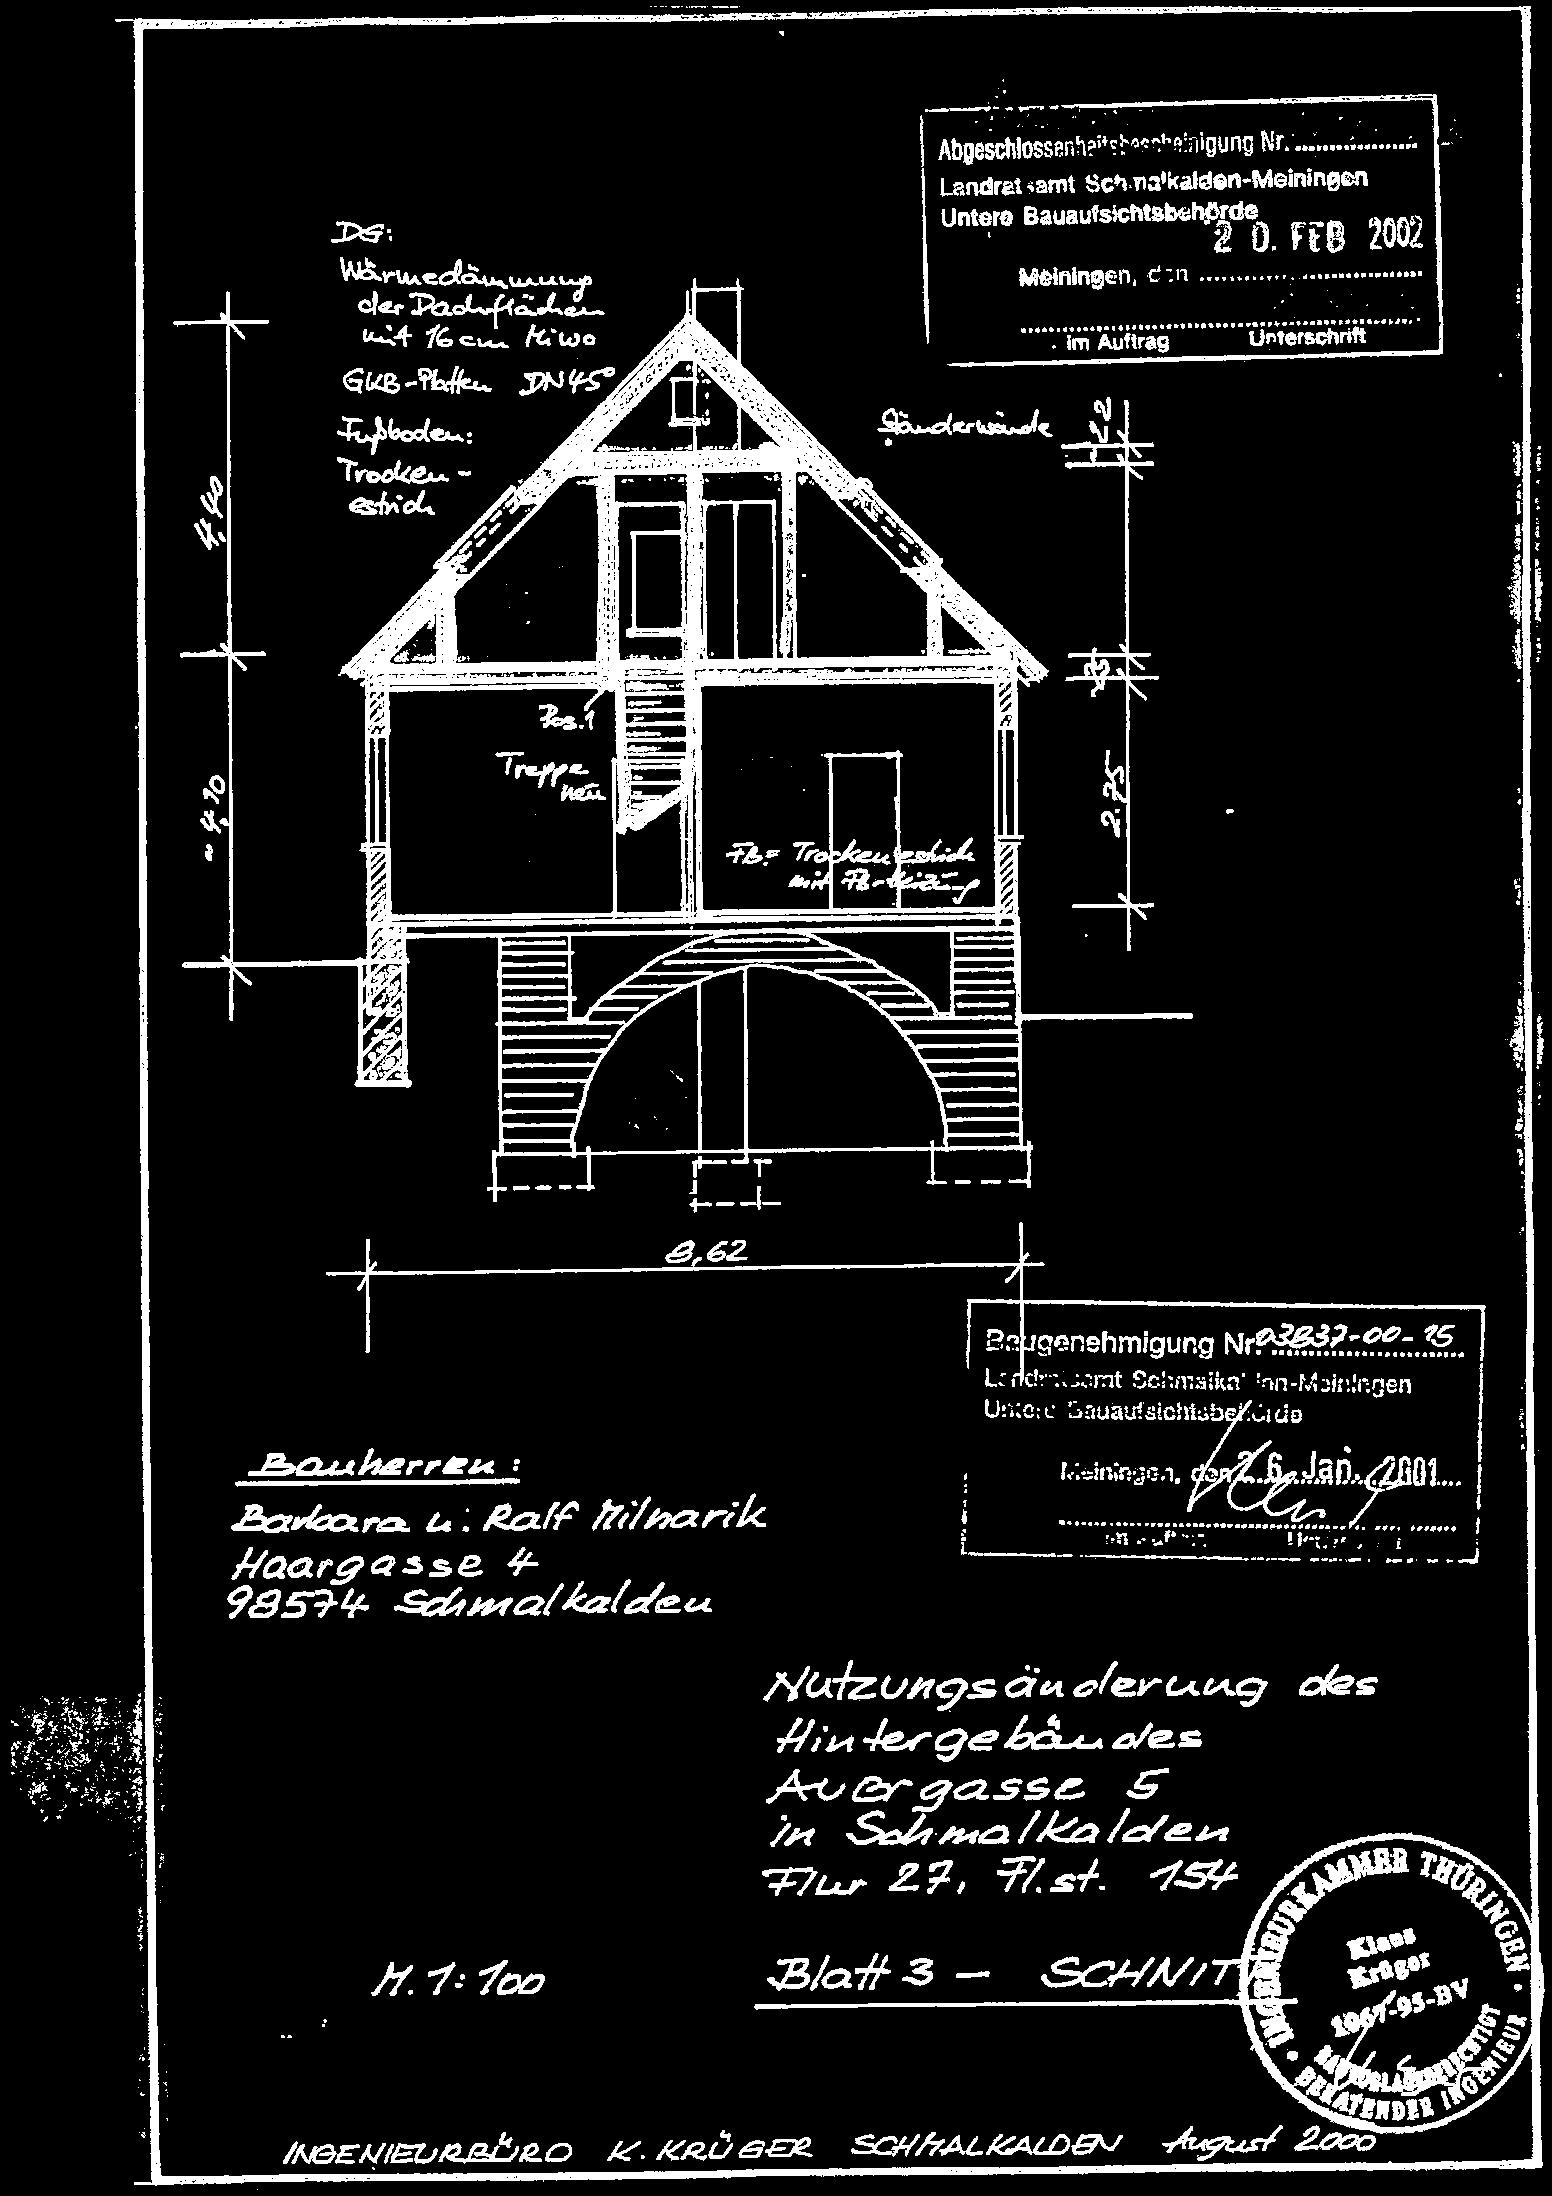 Abgeschlossenheitsbescheinigung Nr.
Landratsamt Schmalkalden-Meiningen
Untere Bauaufsichtsbehörde
20. FEB 2002
Meiningen, den
im Auftrag Unterschrift
DG:
Wärmedämmung
der Dachflächen
mit 16 cm Miwo
GKB-Platten DN 45°
Fußboden:
Trocken-
estrich
Ständerwände
22
4,40
Pos. 1
Treppe
neu
4,10
2.75
FB: Trockenestrich
mit FB-Heizung
8,62
Baugenehmigung Nr. 03837-00-15
Landratsamt Schmalkalden-Meiningen
Untere Bauaufsichtsbehörde
Meiningen, den 26. Jan. 2001
im Auftrag
Bauherren:
Barbara u. Ralf Milnarik
Haargasse 4
98574 Schmalkalden
Nutzungsänderung des
Hintergebäudes
Auergasse 5
in Schmalkalden
Flur 27, Fl.st. 154
M. 1:100
Blatt 3 – SCHNITT
INGENIEURKAMMER THÜRINGEN
Klaus
Krüger
1067-95-BV
BAUVORLAGEBERECHTIGT
BERATENDER INGENIEUR
INGENIEURBÜRO K. KRÜGER SCHMALKALDEN August 2000